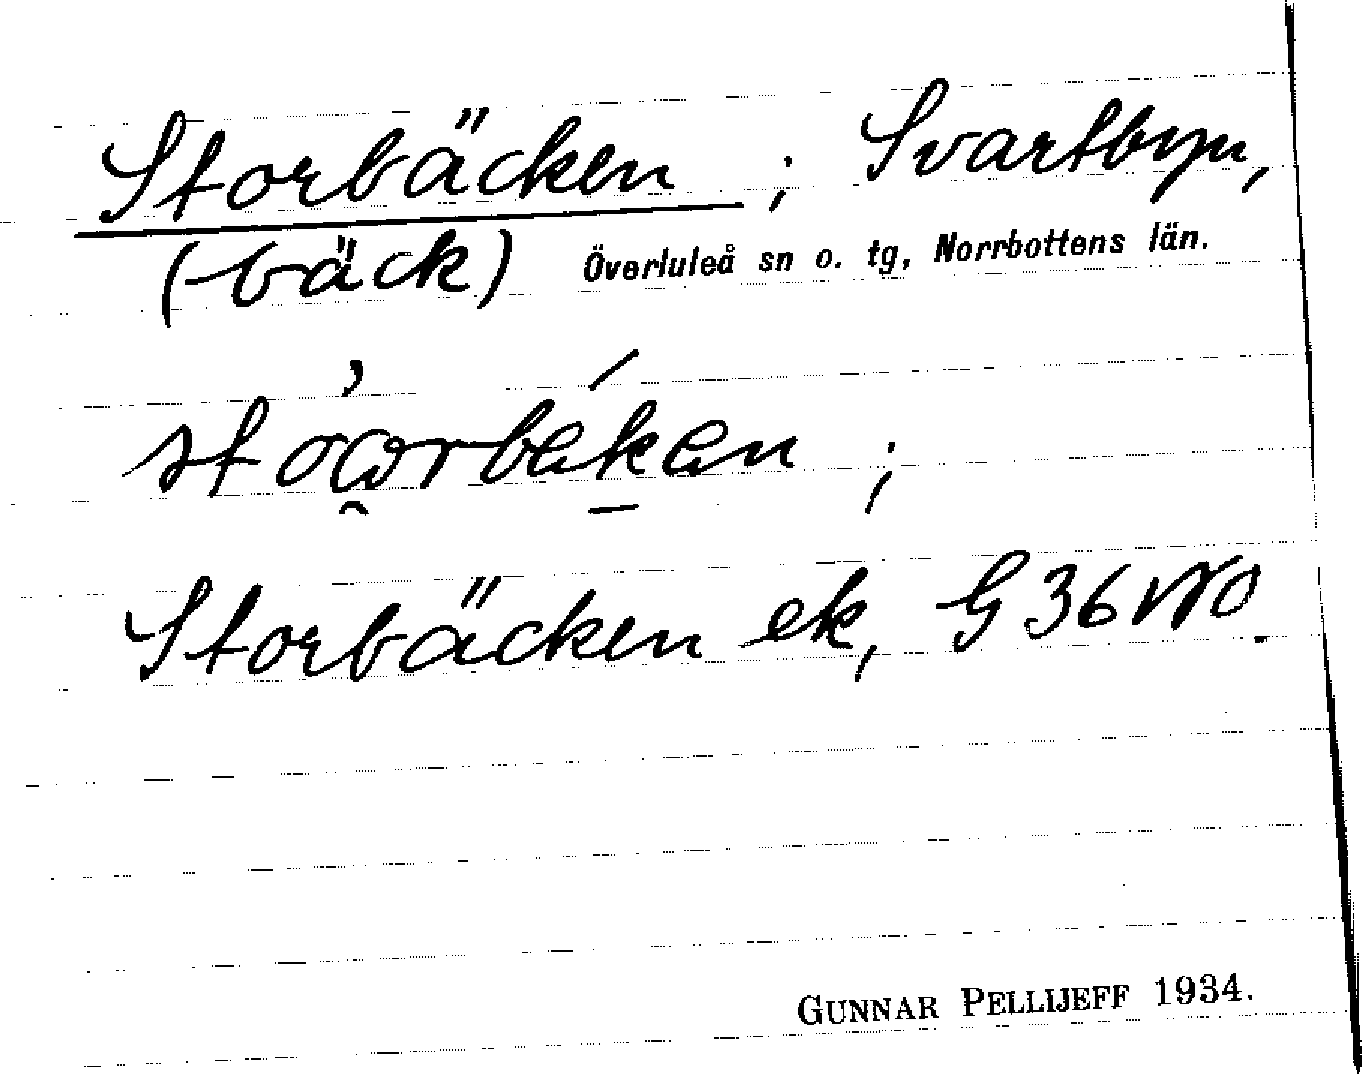 Storbäcken ; Svartbyn,
(-bäck) Överluleå sn o. tg, Norrbottens län.
Storbäcken ek, G 36 NO.
GUNNAR PELLIJEFF 1934.